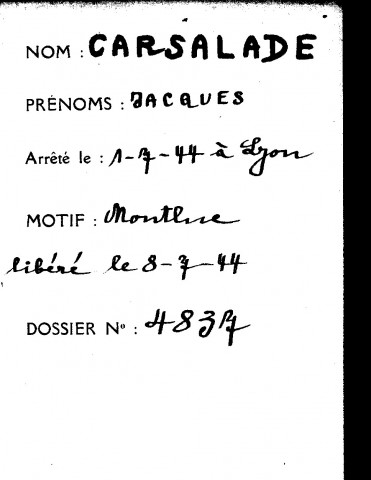 NOM : CARSALADE
PRÉNOMS : JACQUES
Arrêté le : 1-7-44 à Lyon
MOTIF : Montluc
libéré le 8-7-44
DOSSIER Nº : 4837